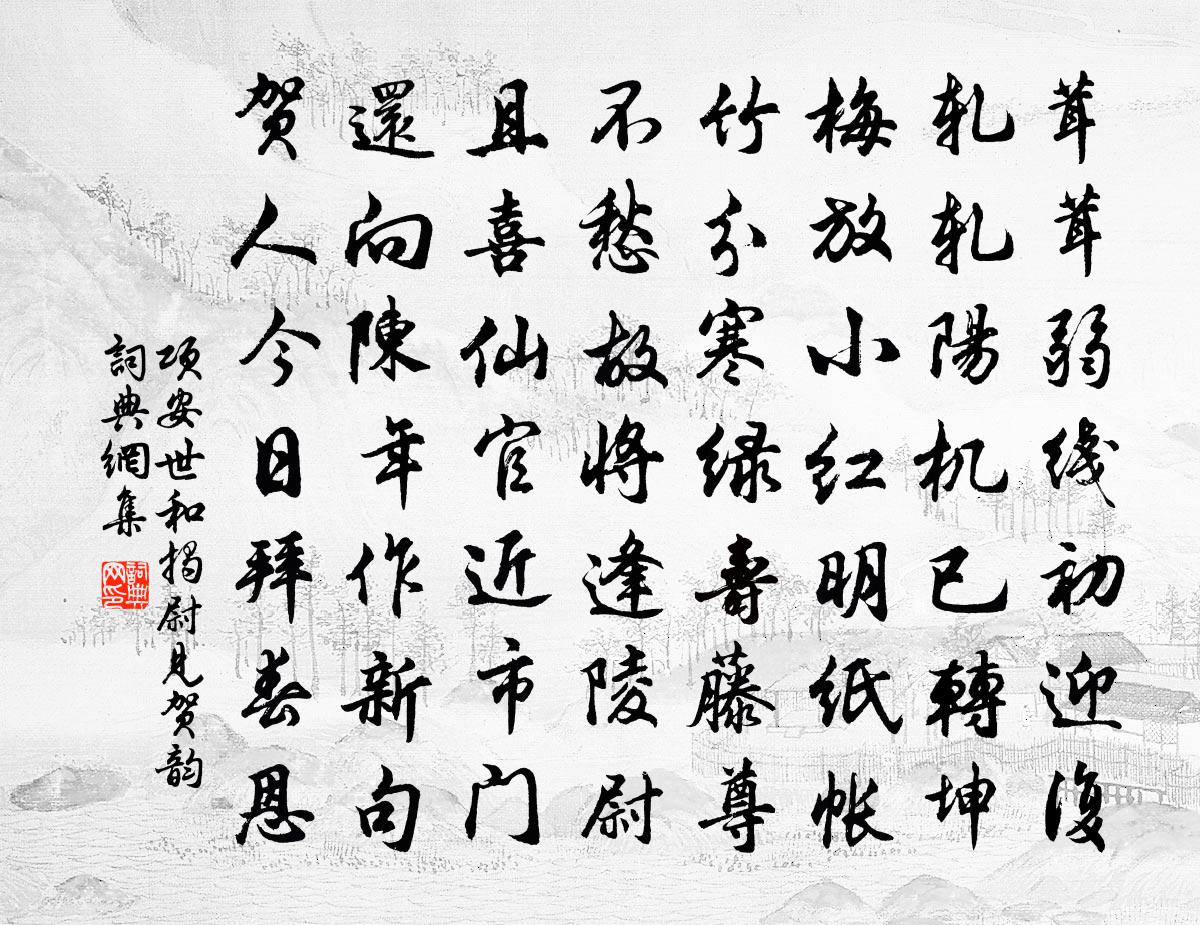 茸茸弱线初迎復
軋軋陽机已轉坤
梅放小红明纸帐
竹分寒绿壽藤尊
不愁故将逢陵尉
且喜仙官近市门
還向陳年作新句
贺人今日拜春恩
项安世和揭尉见贺韵
詞典網集
詞典网印